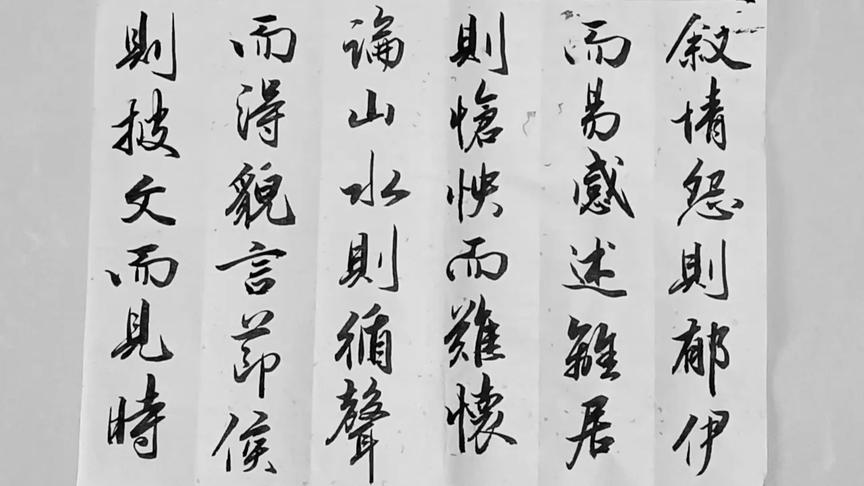 敘情怨則郁伊
而易感述離居
則愴怏而難懷
論山水則循聲
而得貌言節候
則披文而見時